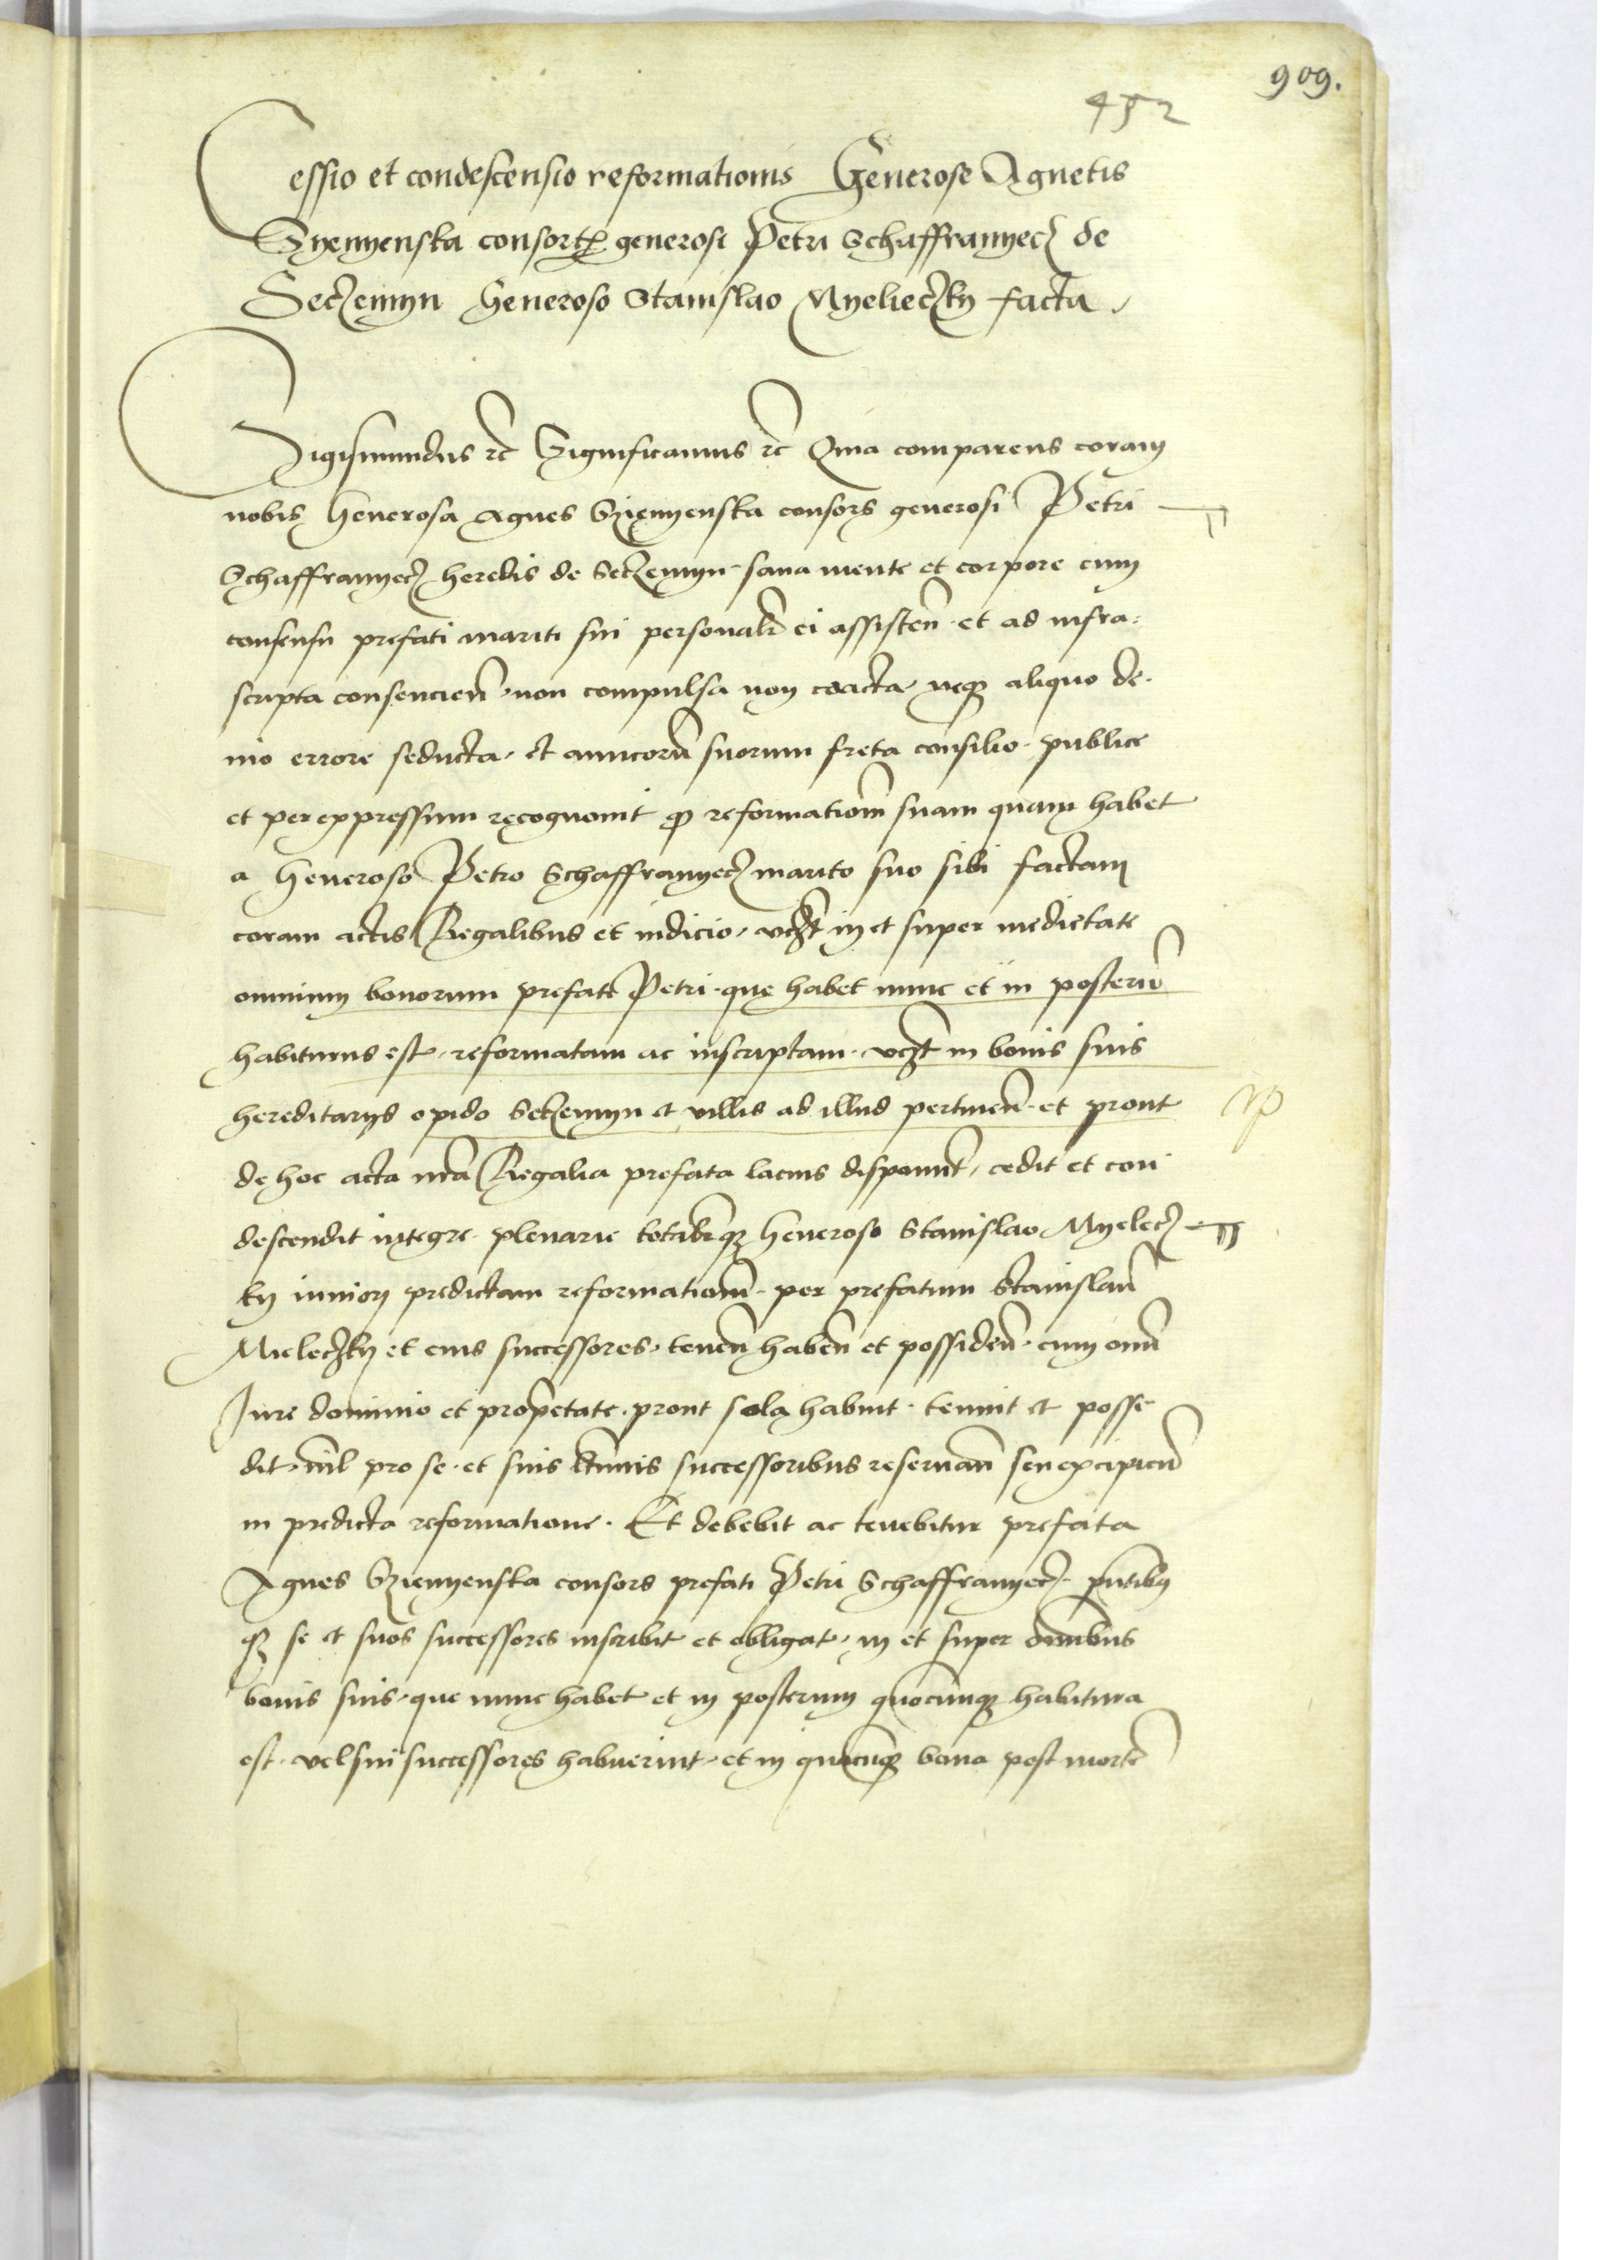 909.
452
Cessio et condescensio reformationis Generose Agnetis
Syenyenska consort generosi Petri Schaffranyecz de
Seczemyn Generoso Stanislao Myelieczky facta
Sigismundus rc Significamus rc Quia comparens coram
nobis Generosa Agnes Szienyenska consors generosi Petri
Schaffranyecz heredis de Seczemyn sana mente et corpore cum
consensu prefati mariti sui personalr ei assisten et ad infra=
scripta consencien non compulsa non coacta neq aliquo de=
nio errore seducta et amicoru suorum freta consilio publice
et per expressum recognovit q reformationem suam quam habet
a Generoso Petro Schaffranyecz marito suo sibi factam
coram actis Regalibus et iudicio vczt in et super medietate
omnium bonorum prefati Petri que habet nunc et in posteru
habiturus est reformatam ac inscriptam vczt in bonis suis
hereditarys opido Seczemyn et villis ad illud pertinen et prout
de hoc acta nra Regalia prefata lacius disponunt cedit et con
descendit integre plenarie totalrq Generoso Stanislao Myelecz
ky iuniori predictam reformationem per prefatum Stanislau
Mieleczky et eius successores tenen haben et possiden cum omni
Jure dominio et proprietate prout sola habuit tenuit et posse
dit nil pro se et suis successoribus reservan seu excipien
in predicta reformatione Et debebit ac tenebitur prefata
Agnes Szienyenska consors prefati Petri Schaffranyecz pntibus
q se et suos successores inscribit et obligat in et super omnibus
bonis suis que nunc habet et in posterum quocunq habitura
est vel sui successores habuerint et in quecunq bona post morte